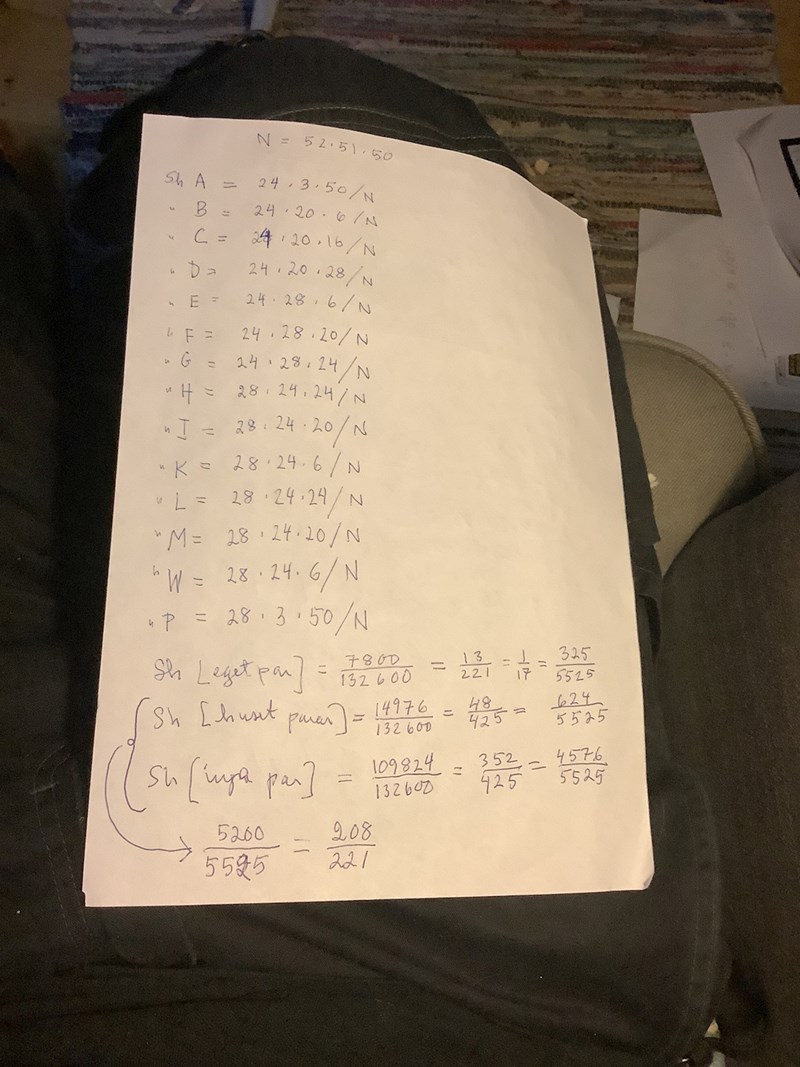 N = 52·51·50
Sh A = 24·3·50/N
" B = 24·20·6/N
" C = 24·20·16/N
" D = 24·20·28/N
" E = 24·28·6/N
" F = 24·28·20/N
" G = 24·28·24/N
" H = 28·24·24/N
" J = 28·24·20/N
" K = 28·24·6/N
" L = 28·24·24/N
" M = 28·24·20/N
" W = 28·24·6/N
" P = 28·3·50/N
Sh [eget par] = 7800/132600 = 13/221 = 1/17 = 325/5525
Sh [huset parar] = 14976/132600 = 48/425 = 624/5525
Sh [inga par] = 109824/132600 = 352/425 = 4576/5525
5200/5525 = 208/221